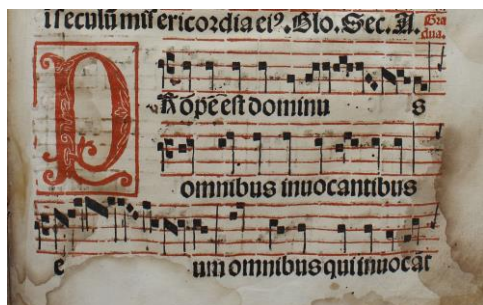 ī seculū misericordia eiꝰ. Glo. Sec. A. Gra
dua.
PRope est dominus
omnibus inuocantibus
eum omnibus qui inuocāt